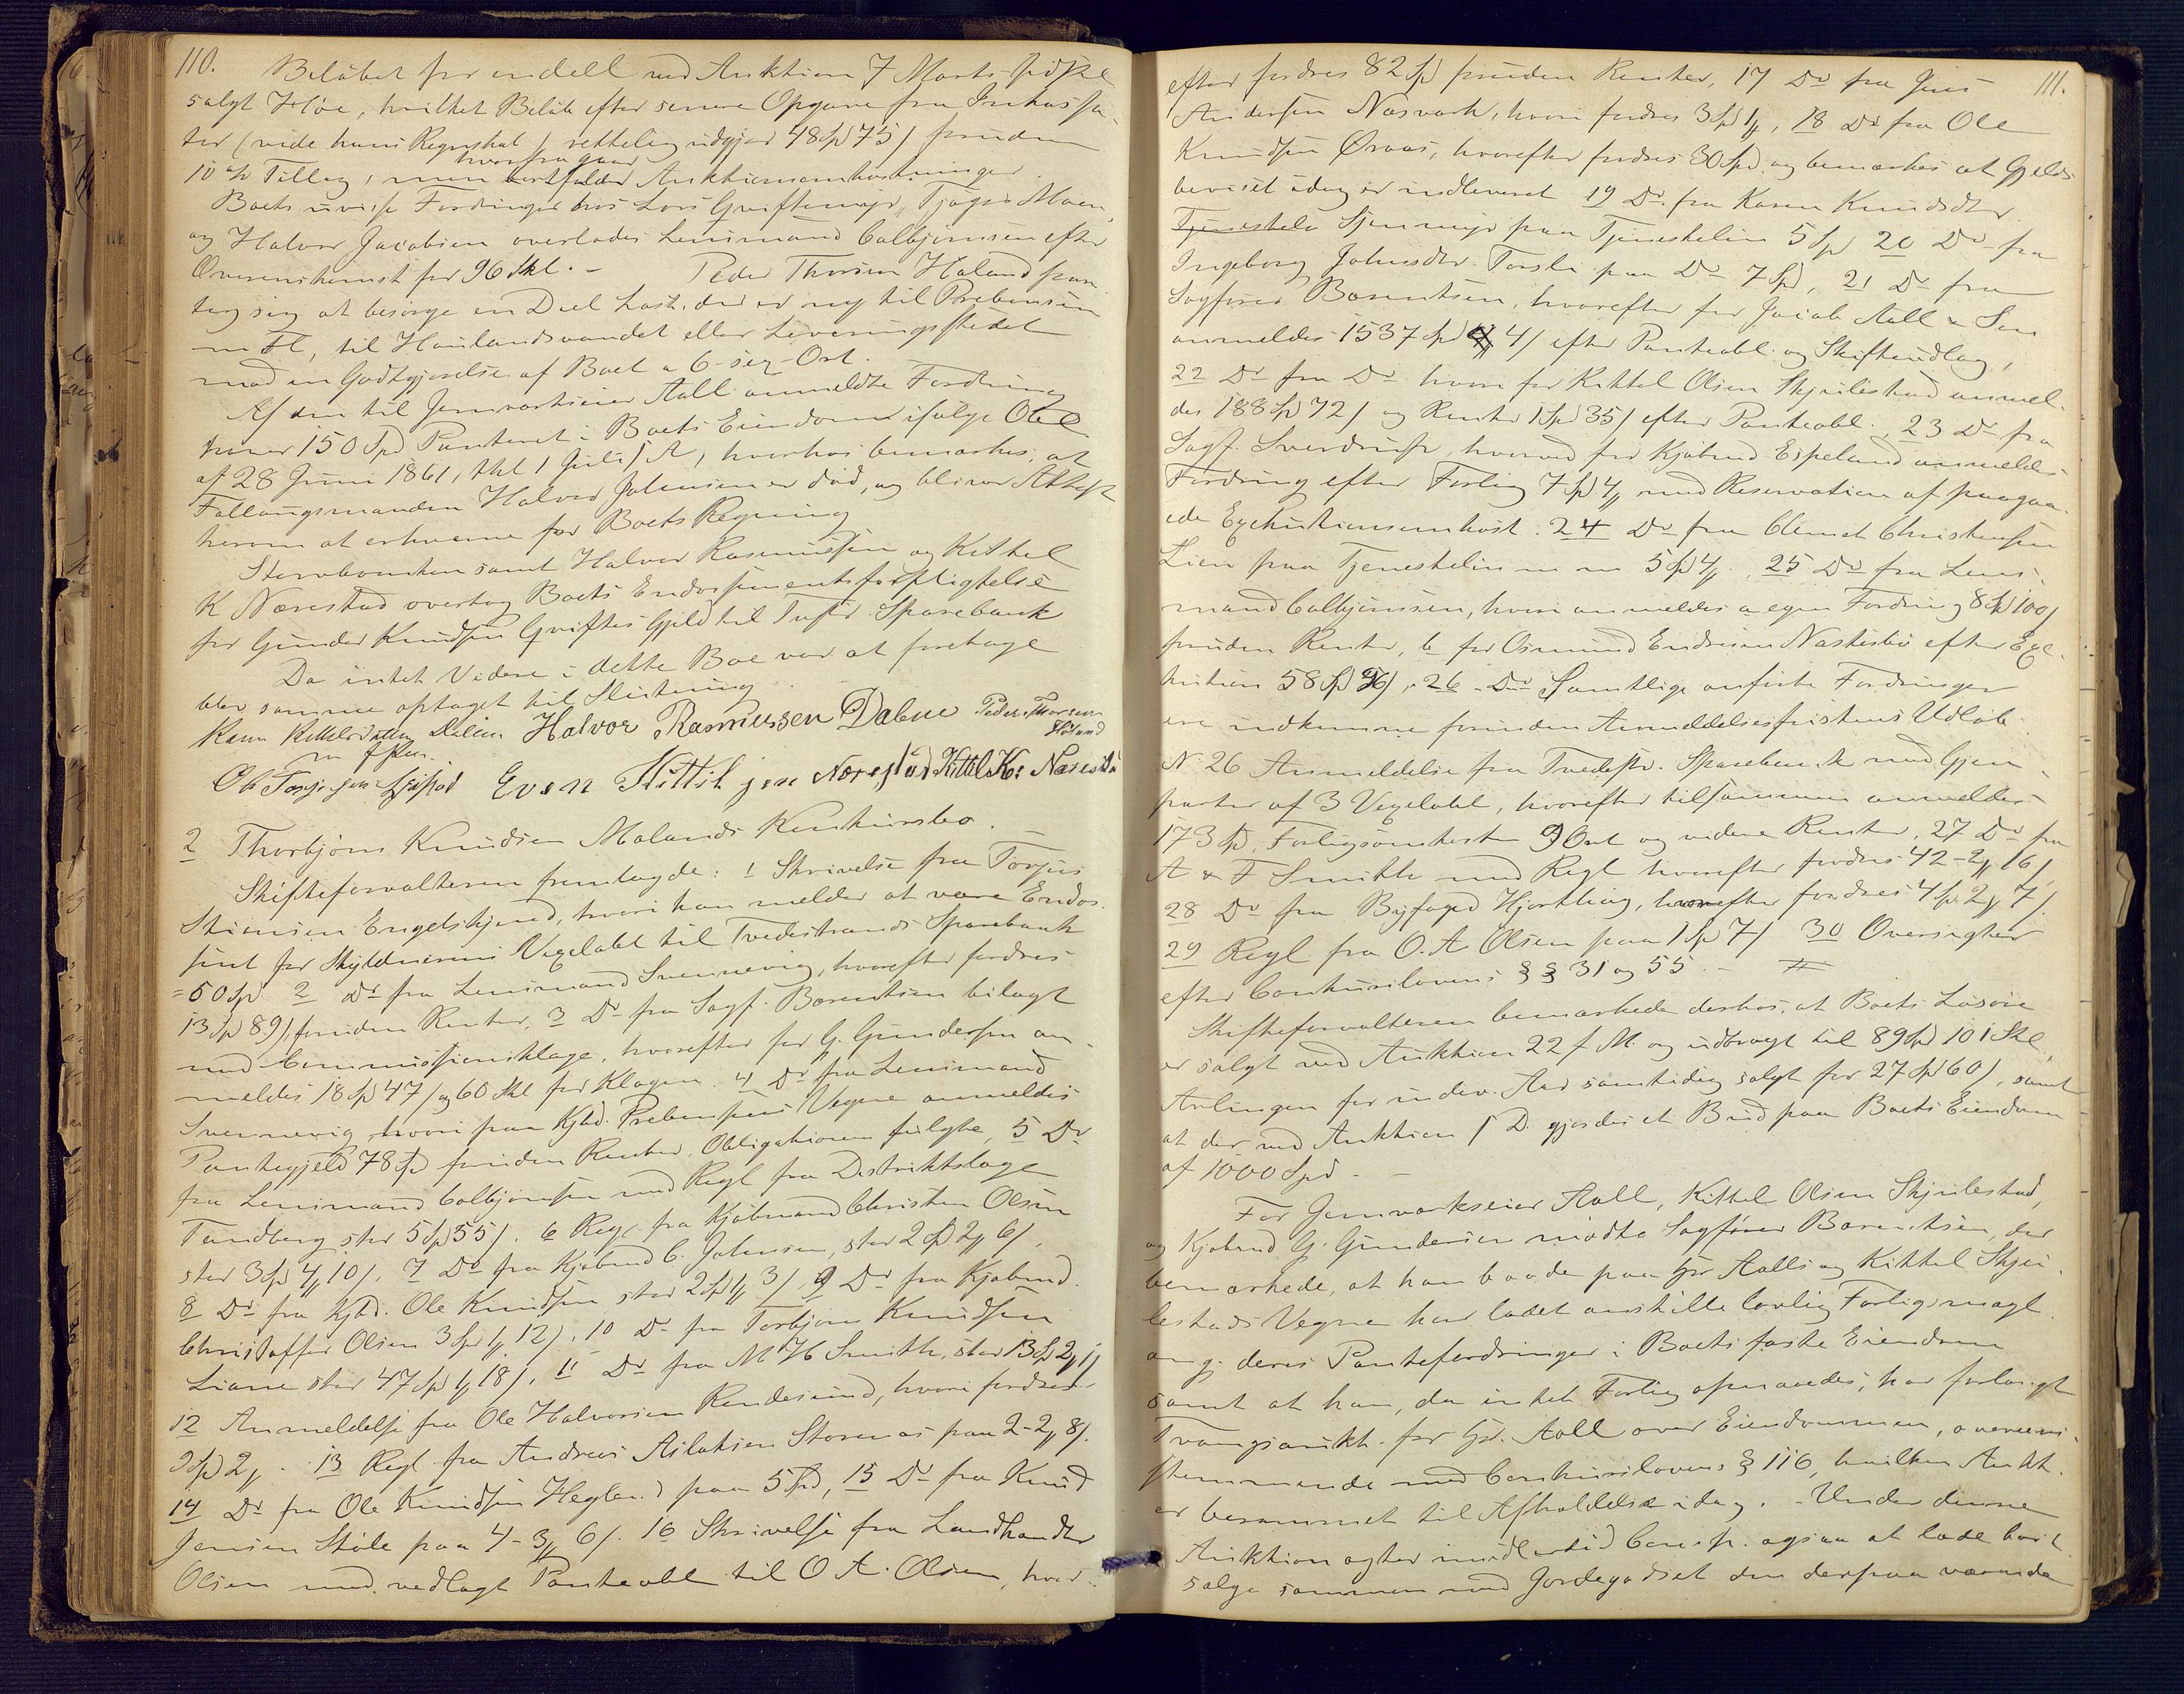 110.
Beløbet for endell ved Auktion 7 Marts sidstl
solgt Høe, hvilket Beløb efter senere Opgave fra Inkassa-
tor (vide hans Regnskab) rettelig udgjør 48 Spd 75 s foruden
10 % Tillæg, men hvorfra gaar Auktionsomkostninger.
Boets uvisse Fordringer hos Lars Gviftemyr, Tjøger Moen,
og Halvor Jacobsen overlodes Lensmand Calbjørnsen efter
Overenskomst for 96 Skl. – Peder Thorsen Høland paa-
tog sig at besørge en Deel Last, der er ny til Prebensen
m Fl, til Haulandsvandet eller Leveringsstedet
mod en Godtgjørelse af Boet a 6 – sex – Ort.
Af den til Jernværkseier Aall anmeldte Fordring
haver 150 Spd Panteret i Boets Eiendom ifølge Obl
af 28 Juni 1861, thl 1 Juli s A, hvorhos bemærkes, at
Fallangsmanden Halvor Johnsen er død, og bliver Attest
herom at erhverve for Boets Regning
Stervboenken samt Halvor Rasmussen og Kittel
K Nærestad overtog Boets Endossementsforpligtelse
for Gunder Knudsen Gviftes Gjeld til Tvestr. Sparebank
Da intet Videre i dette Boe var at foretage
blev samme optaget til Slutning
Karen Kittelsdatter Dalene Halvor Rasmussen Dalene Peder Thorsen Høland
m f Pen.
Ole Even Kittilsen Nærestad Kittel Ks Narestad
2 Thorbjørn Knudsen Molands Konkursbo. –
Skifteforvalteren fremlagde: 1 Skrivelse fra Torjus
Stiansen Engelskjøn, hvori han melder at være Endos-
sent for Skyldnerens Vexelobl til Tvedestrands Sparebank
= 50 Spd 2 Do fra Lensmand Svennevig, hvorefter fordres
13 Spd 89 s, foruden Renter, 3 Do fra Sagf. Barentsen bilagt
med Commissionsklage, hvorefter for G. Gundersen an-
meldes 18 Spd 47 s og 60 Skl for Klagen. 4 Do fra Lensmand
Svennevig hvori paa Kjbd. Prebensens Vegne anmeldes
Pantegjeld 78 Spd foruden Renter, Obligationen fulgte, 5 Do
fra Lensmand Calbjørnsen med Regl fra Distriktslæge
Tandberg stor 5 Spd 55 s. 6 Reg. fra Kjøbmand Christen Olsen
stor 3 Spd 4 10 s, 7 Do fra Kjøbmd C. Johnsen, stor 2 Spd 2 6 s,
8 Do fra Kjbd. Ole Knudsen stor 2 Spd 1 3 s, 9 Do fra Kjøbmd.
Christoffer Olsen 3 Spd 1 12 s, 10 Do fra Torbjørn Knudsen
Liane stor 47 Spd 1 18 s, 11 Do fra M H Smith, stor 13 Sp 2 1 s
12 Anmeldelse fra Ole Halvorsen Rendesund, hvori fordres
9 Spd 2. 13 Regl fra Andreas Aslaksen Storenæs paa 2-2 8 s.
14 Do fra Ole Knudsen Hegland paa 5 Spd, 15 Do fra Knud
Jensen Støle paa 4 – 3 6 s. 16 Skrivelse fra Landhandler
Olsen med vedlagt Panteobl til O A. Olsen, hvor-
111.
efter fordres 82 Spd foruden Renter, 17 Do fra Jens
Andersen Næsvark, hvori fordres 3 Spd 1, 18 Do fra Ole
Knudsen Øvaas, hvorefter fordres 30 Spd. og bemærkes at Gjelds-
beviset idag er indleveret 19 Do. fra Karen Knudsdtr
Tjenestelø Sjønmyr paa Tjenesteløn 5 Spd 20 Do fra
Ingeborg Johnsdtr Torsli paa Do 7 Spd, 21 Do fra
Sagfører Barentsen, hvorefter for Jacob Aall & Søn
anmeldes 1537 Spd 4 s efter Panteobl. og Skifteudlæg,
22 Do fra Do hvori for Kittel Olsen Skjulestad anmel-
des 188 Spd 72 s og Renter 1 Spd 35 s efter Panteobl. 23 Do fra
Sagf. Sverdrup, hvorved for Kjøbmd Espeland anmeldes
Fordring efter Forlig 7 Spd 4 med Reservation af paagaa-
ede Exekutionsomkost. 24 Do fra Clemet Christensen
Lien paa Tjenesteløn m m 5 Spd 4, 25 Do fra Lens-
mand Calbjørnsen, hvori anmeldes a egen Fordring 8 Spd 100 s
foruden Renter, b for Osmund Endresen Nastesbø efter Exe-
kution 58 Spd 96 s, 26 Do Samtlige anførte Fordringer
ere indkomne forinden Anmeldelsesfristens Udløb.
N 26 Anmeldelse fra Tvedestr. Sparebank med Gjen-
parter af 3 Vexelobl, hvorefter tilsammen anmeldes
173 Spd, Forligsomkosten 9 Ort og videre Renter, 27 Do fra
A & F Smith med Regl hvorefter fordres 42-2 16 s,
28 Do fra Byfoged Hjortling, hvorefter fordres 4 Sp 2 7 s.
29 Regl fra O. A Olsen paa 1 Sp 7 s 30 Oversigter
efter Conkurslovens §§ 31 og 55. –
Skifteforvalteren bemærkede derhos, at Boets Løsøre
er solgt ved Auktion 22 f M. og udbragt til 89 Spd 101 Skl,
Avlingen for indev. Aar samtidig solgt for 27 Spd 60 s, samt
at der ved Auktion s D. gjordes et Bud paa Boets Eiendom
af 1000 Spd –
For Jernværkseier Aall, Kittel Olsen Skjulestad,
og Kjøbmd G. Gundersen mødte Sagfører Barentsen, der
bemærkede, at han baade paa Hr Aalls og Kittel Skju-
lestads Vegne har ladet anstille lovlig Forligsmægl.
ang. deres Pantefordringer i Boets faste Eiendom
samt at han, da intet Forlig opnaaedes, har forlangt
Tvangsaukt. for Hr. Aall over Eiendommen, overeens-
stemmende med Conkurslovens § 116, hvilken Aukt.
er berammet til Afholdelse idag. – Under denne
Auktion agter imidlertid Comp. ogsaa at lade bort
sælge sammen med Jordegodset den derpaa værende